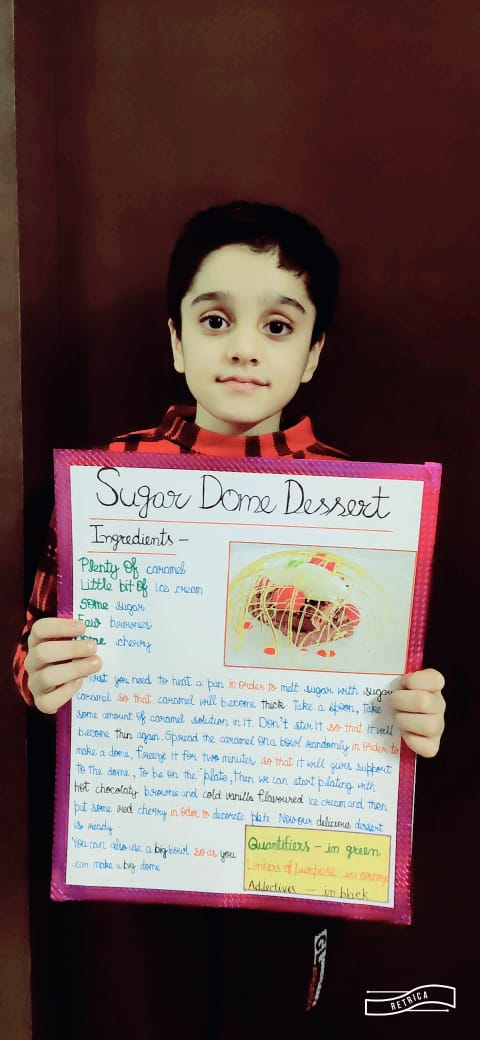 Sugar Dome Dessert
Ingredients -
Plenty Of caramel
Little bit Of Ice cream
Some sugar
Few brownies
Some cherry
First you need to heat a pan in order to melt sugar with sugar
caramel so that caramel will become thick Take a spoon, take
some amount of caramel solution in it. Don't stir it so that it will
become thin again. Spread the caramel on a bowl randomly in order to
make a dome, freeze it for two minutes so that it will gives support
to the dome, to be on the plate, Then we can start plating with
hot chocolaty brownie and cold vanilla flavoured ice cream and then
put some red cherry in oder to decorate plate. Now our delicious dessert
is ready.
You can also use a big bowl so as you
can make a big dome
Quantifiers - in green
Linkers of purpose - in orange
Adjectives - in black
RETRICA